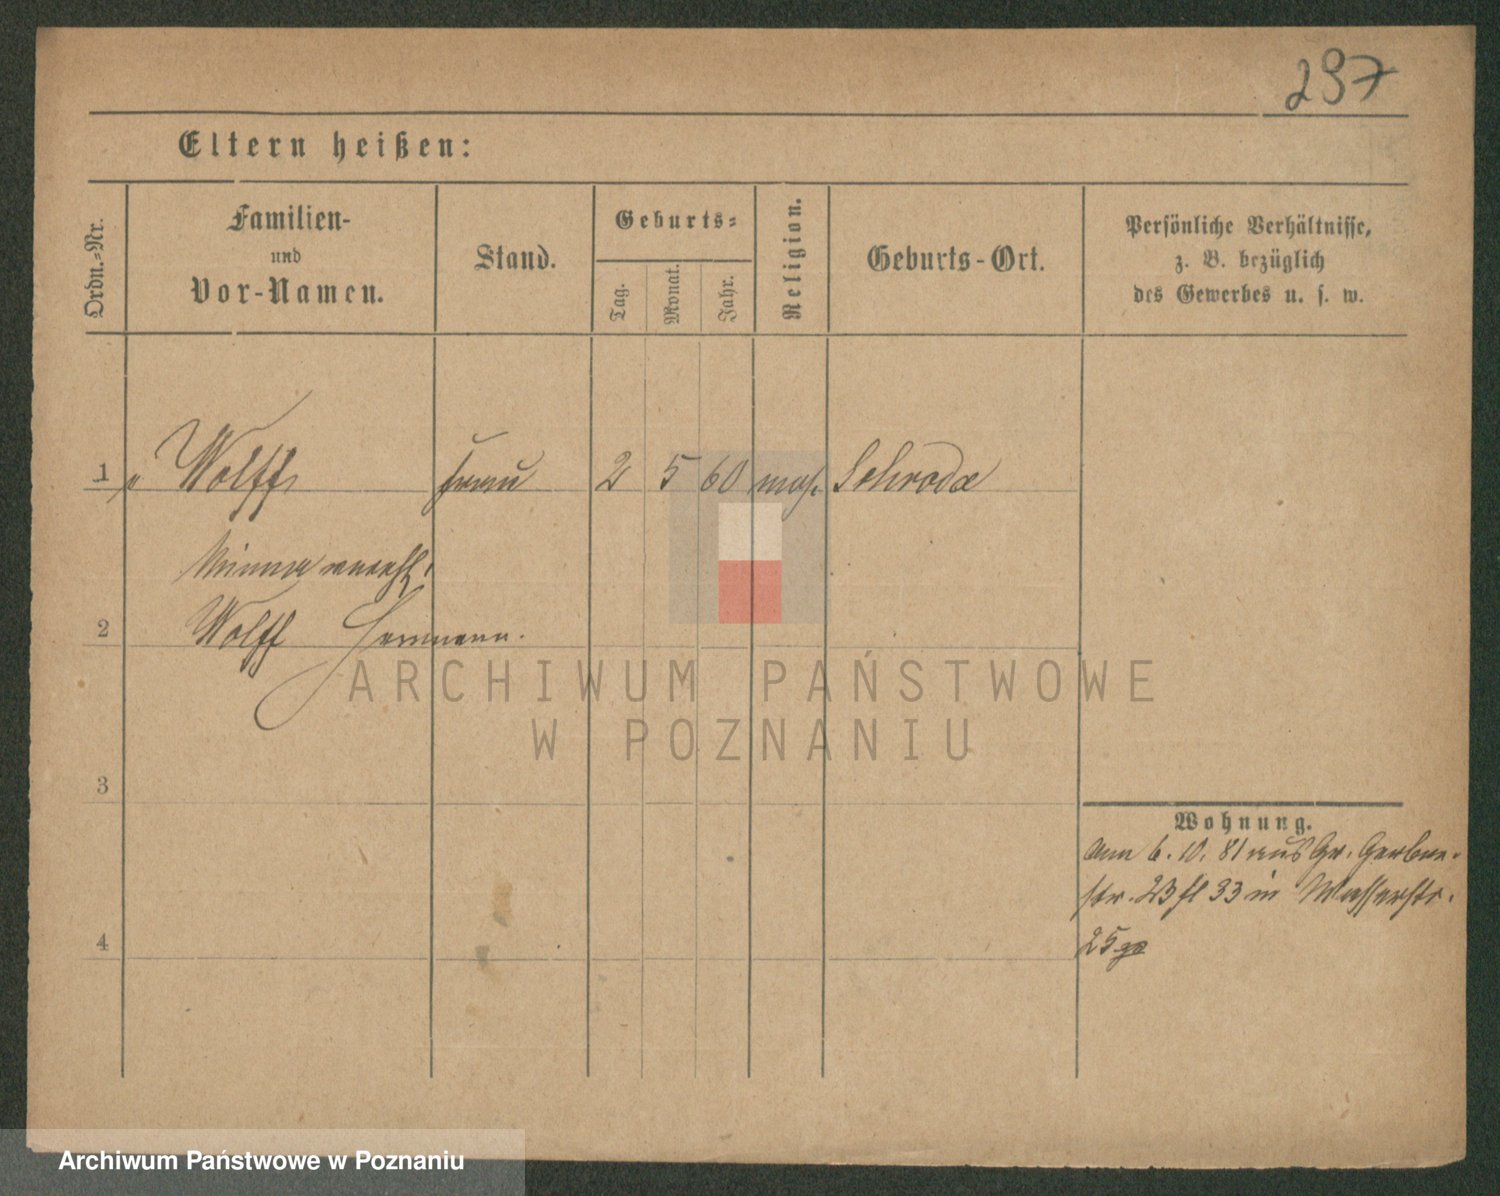 297
Eltern heißen:
Ordn.-Nr.
Familien-
und
Vor-Namen.
Stand.
Geburts-
Tag.
Monat.
Jahr.
Religion.
Geburts-Ort.
Persönliche Verhältnisse,
z. B. bezüglich
des Gewerbes u. s. w.
1 Wolff Frau 2 5 60 mos. Schroda
Minna
2 Wolff Hermann.
ARCHIWUM PAŃSTWOWE
W POZNANIU
3
Wohnung.
6. 10. 81 aus Gr. Gerber-
str. 23 33 in Wasserstr.
25
4
Archiwum Państwowe w Poznaniu